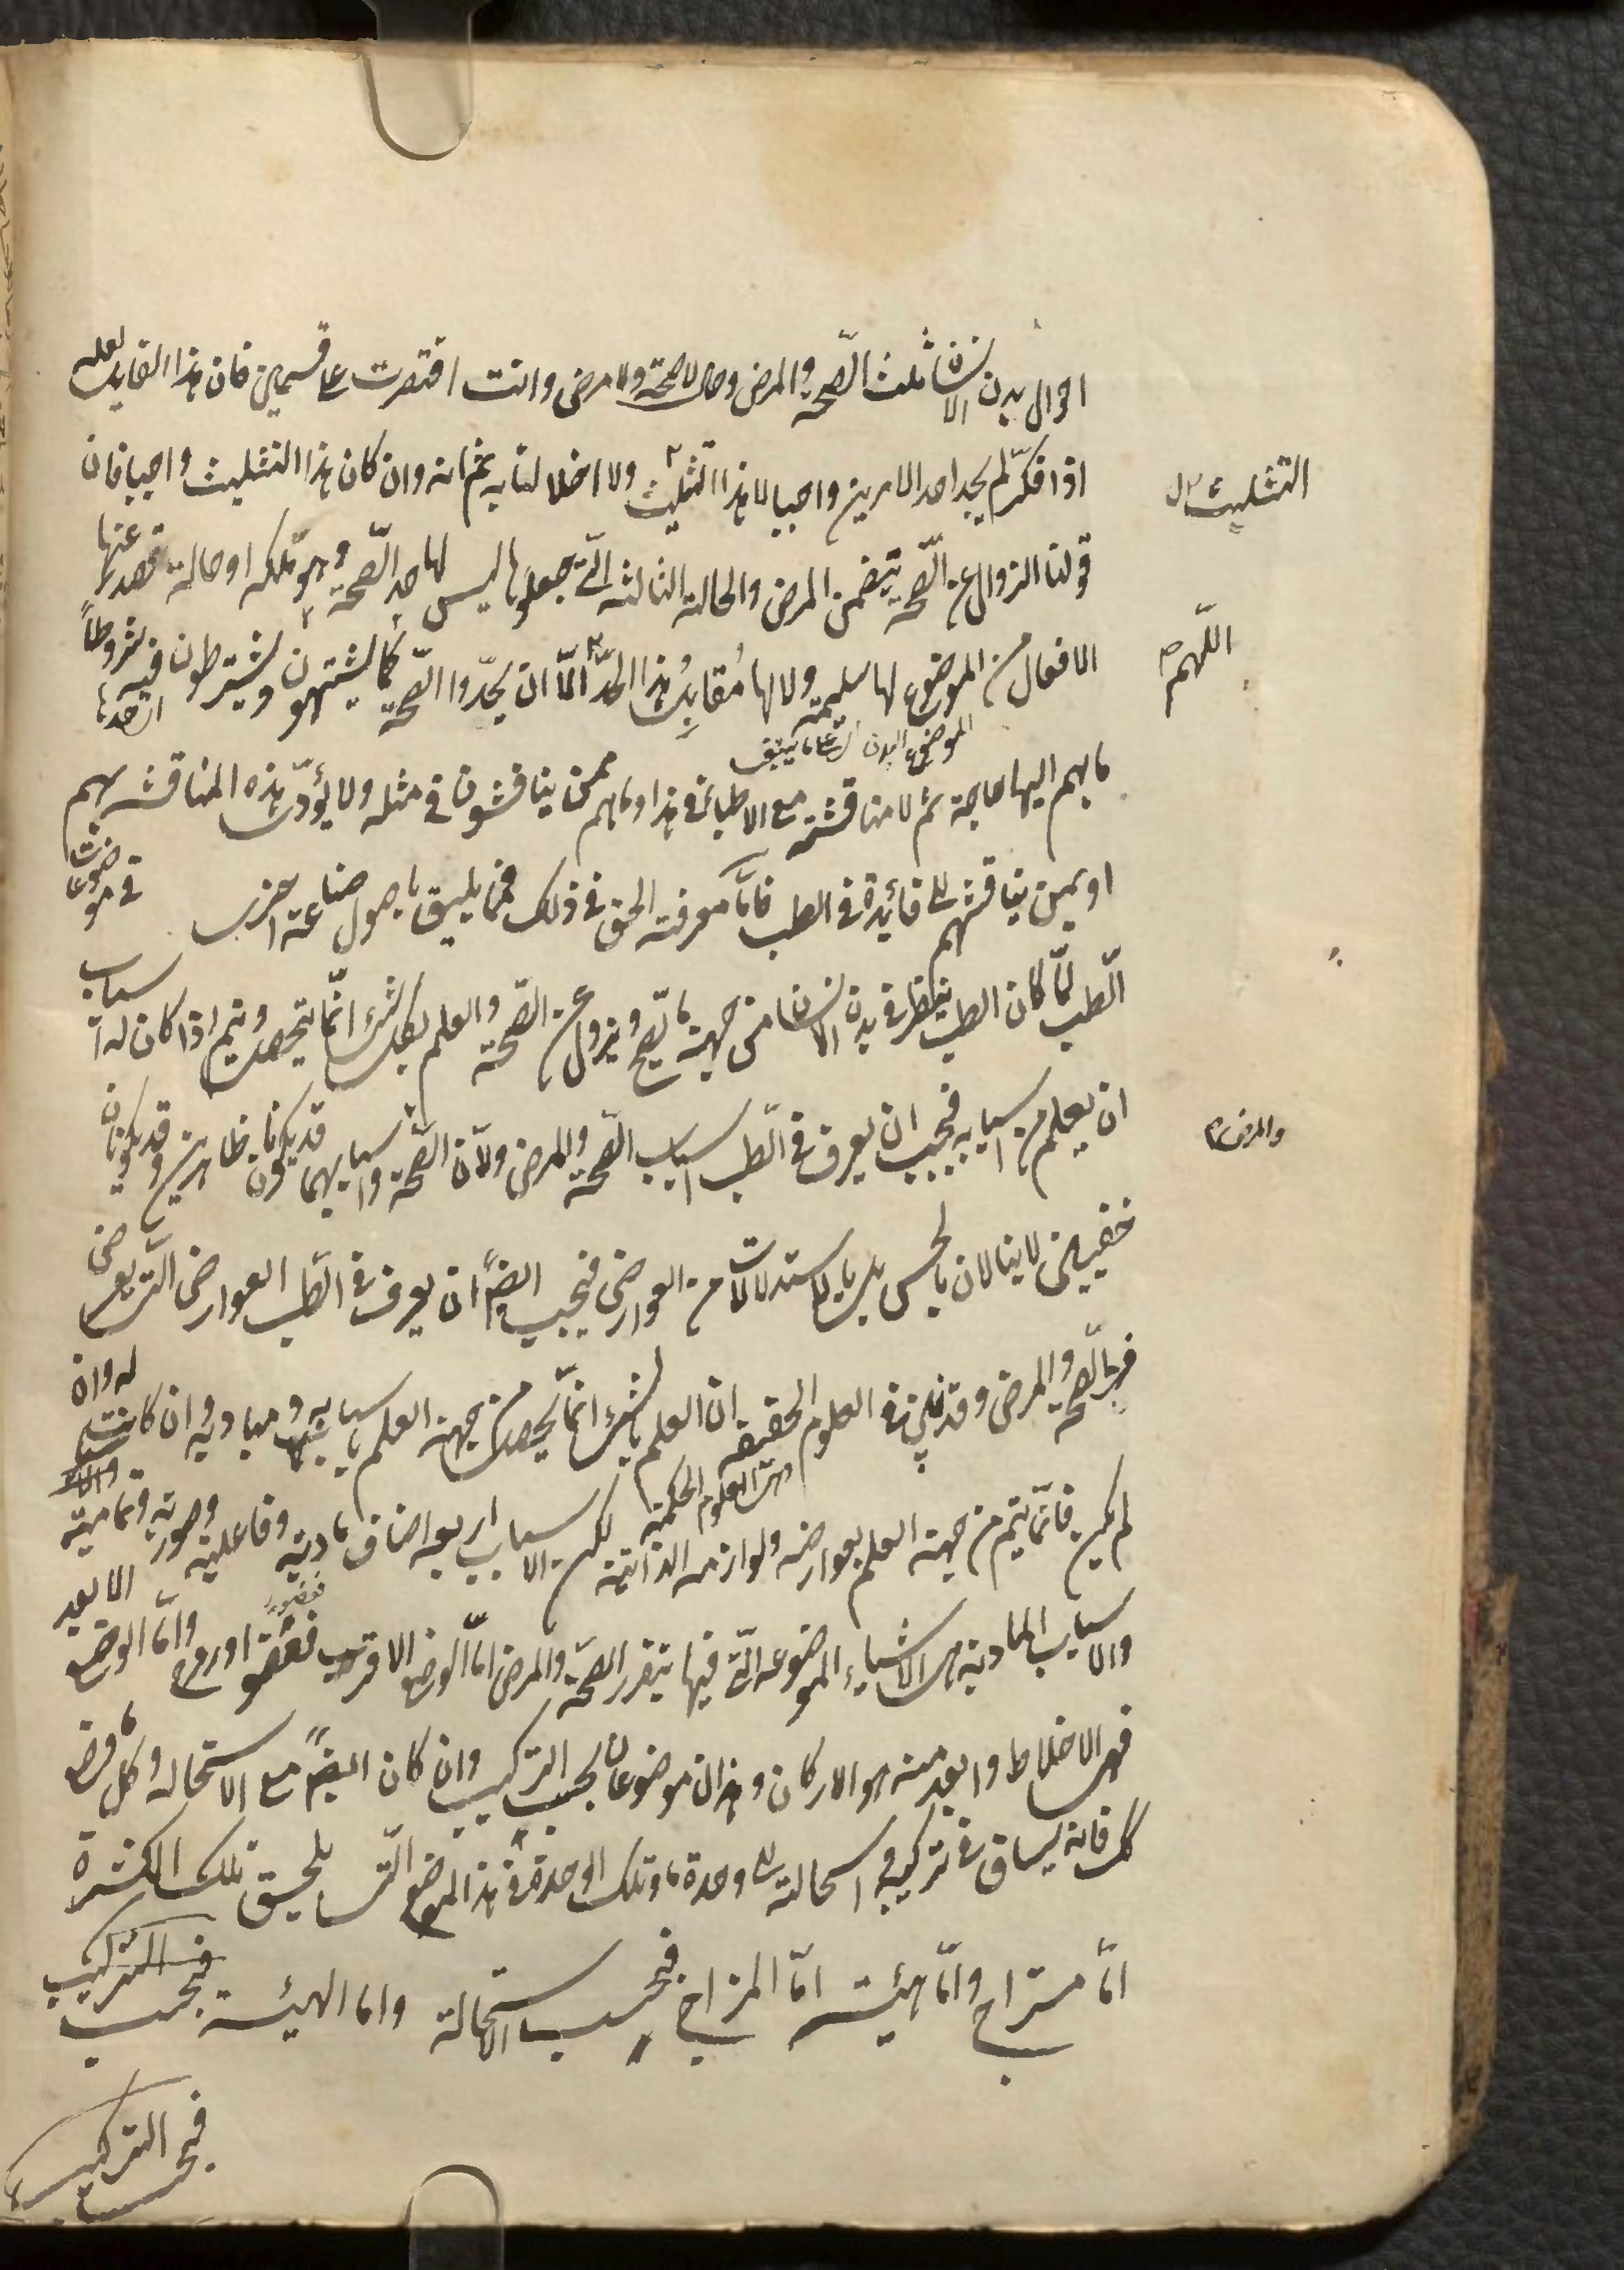 احوال بدن الانسان ثلث الصّحة والمرض وحال لا صحة ولا مرض وانت اقتصرت على قسمين فان هذا القايل لعله
اذا فكّر لم يجد احد الامرين واجبا لا هذا التثليث ولا اخلالنا به ثم انه وان كان هذا التثليث واجبا فان
التثليث
قولنا الزوال عن الصّحة يتضمن المرض والحالة الثالثه الّتى جعلوها ليس لها حد الصّحة وهو ملكه او حالة تصدر عنها
الافعال من الموضوع لها سليمة ولا لها مُقابِلُ هذا الحدّ الّا ان يحدّوا الصّحة كما يشتهون ويشترطون فيه شروطاً
اللّهم
ما بهم اليها حاجة ثم لا مناقشة مع الاطباء فى هذا وما هم ممن يناقشون فى مثله ولا يؤدّى هذه المناقشه بهم
او بمن يناقشهم الى فائدة فى الطب فامّا معرفة الحق فى ذلك فمما يليق باصول صناعة اخرى
فى موضوعات
الطّب لمّا كان الطب ينظر فى بدن الانسان من جهة ما يصح ويزول عن الصّحة والعلم بكل شئ انّما يتحصل ويتم اذا كان له اسباب
ان يعلم من اسبابه فيجب ان يعرف فى الطّب اسباب الصّحة والمرض ولانّ الصّحة واسبابهما قد يكونان ظاهرين وقد يكونان
والمرض
خفيين لا ينالان بالحس بل بالاستدلالات من العوارض فيجب ايضاً ان يعرف فى الطّب العوارض الّتى تعرض
فى الصّحة والمرض وقد تبين فى العلوم الحقيقه ان العلم بالشئ انّما يحصل من جهة العلم باسبابه ومباديه ان كانت له وان
وهى العلوم الحكمية
لم يكن فانّما يتم من جهة العلم بعوارضه ولوازمه الذاتية لكن الاسباب اربعه اصناف ماديّة وفاعلية وصورية وتمامية
والاسباب الماديّة هى الاشياء الموضوعه الّتى فيها يتقرر الصحّة والمرض امّا الموضوع الاقرب فعضو او روح وامّا الموضوع الابعد
فهى الاخلاط وابعد منه هو الاركان وهذان موضوعان بحسب التركيب وان كان ايضاً مع الاستحاله وكل ما وضع
كك فانه يساق فى تركيبه واستحالته الى وحدة ما وتلك الوحدة فى هذا الموضع الّتى يلحق تلك الكثرة
امّا مزاج وامّا هيئة امّا المزاج فبحسب الاستحالة واما الهيئة فبحسب التركيب
فبحسب التركيب